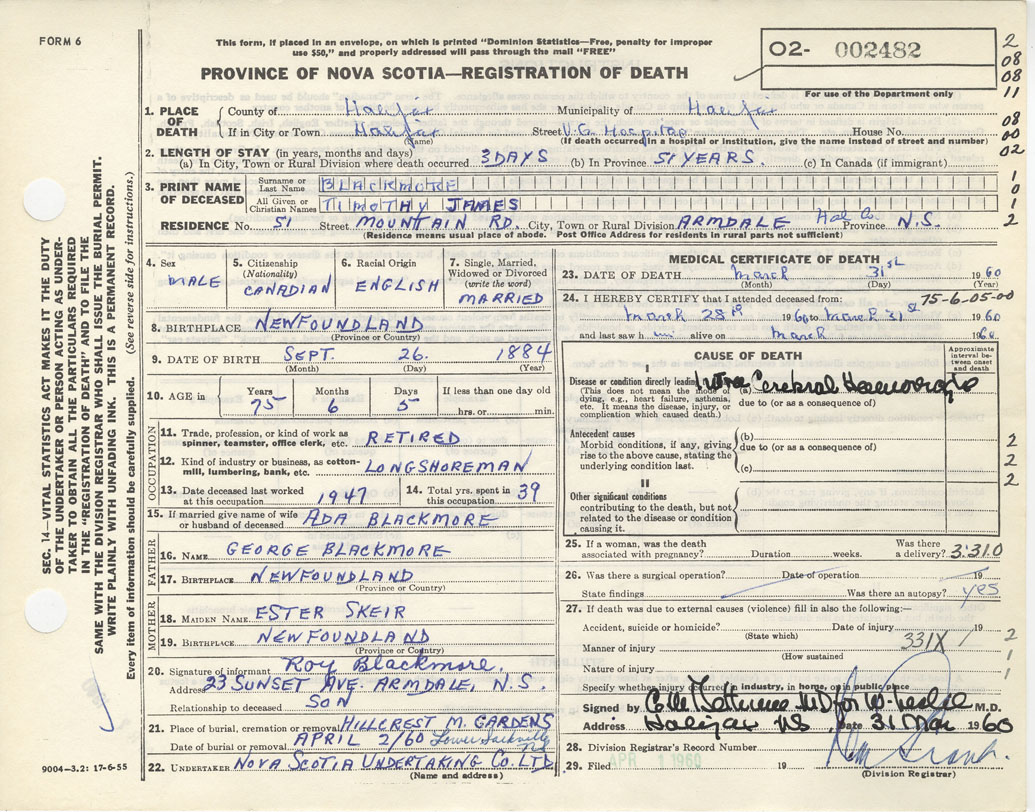 FORM 6
This form, if placed in an envelope, on which is printed "Dominion Statistics—Free, penalty for improper
use $50," and properly addressed will pass through the mail "FREE"
PROVINCE OF NOVA SCOTIA—REGISTRATION OF DEATH
02- 002482
For use of the Department only
2
08
08
11
08
00
02
1
0
1
2
1. PLACE OF DEATH County of Halifax Municipality of Halifax
If in City or Town Halifax Street V.G. Hospital House No.
(Name) (If death occurred in a hospital or institution, give the name instead of street and number)
2. LENGTH OF STAY (in years, months and days)
(a) In City, Town or Rural Division where death occurred 3 DAYS (b) In Province 51 YEARS. (c) In Canada (if immigrant)
3. PRINT NAME OF DECEASED Surname or Last Name BLACKMORE
All Given or Christian Names TIMOTHY JAMES
RESIDENCE No. 51 Street MOUNTAIN RD. City, Town or Rural Division ARMDALE Hal Co. Province N.S.
(Residence means usual place of abode. Post Office Address for residents in rural parts not sufficient)
4. Sex MALE
5. Citizenship (Nationality) CANADIAN
6. Racial Origin ENGLISH
7. Single, Married, Widowed or Divorced (write the word) MARRIED
8. BIRTHPLACE NEWFOUNDLAND
(Province or Country)
9. DATE OF BIRTH SEPT. 26. 1884
(Month) (Day) (Year)
10. AGE in Years 75 Months 6 Days 5 If less than one day old
hrs. or min.
OCCUPATION
11. Trade, profession, or kind of work as spinner, teamster, office clerk, etc. RETIRED
12. Kind of industry or business, as cotton-mill, lumbering, bank, etc. LONGSHOREMAN
13. Date deceased last worked at this occupation 1947
14. Total yrs. spent in this occupation 39
15. If married give name of wife or husband of deceased ADA BLACKMORE
FATHER
16. NAME GEORGE BLACKMORE
17. BIRTHPLACE NEWFOUNDLAND
(Province or Country)
MOTHER
18. MAIDEN NAME ESTER SKEIR
19. BIRTHPLACE NEWFOUNDLAND
(Province or Country)
20. Signature of informant Roy Blackmore.
Address 23 SUNSET AVE. ARMDALE, N.S.
Relationship to deceased SON
21. Place of burial, cremation or removal HILLCREST M. GARDENS
Date of burial or removal APRIL 2/60 Lower Sackville NS
22. UNDERTAKER NOVA SCOTIA UNDERTAKING CO. LTD
(Name and address)
MEDICAL CERTIFICATE OF DEATH
23. DATE OF DEATH March 31st 1960
(Month) (Day) (Year)
24. I HEREBY CERTIFY that I attended deceased from: 75-6-05-00
March 28th 1960 to March 31st 1960
and last saw him alive on March 1960
CAUSE OF DEATH
Approximate interval between onset and death
I
Disease or condition directly leading (a) Intra Cerebral Haemorrhage
(This does not mean the mode of dying, e.g., heart failure, asthenia, etc. It means the disease, injury, or complication which caused death.)
due to (or as a consequence of)
Antecedent causes
Morbid conditions, if any, giving rise to the above cause, stating the underlying condition last.
(b)
due to (or as a consequence of)
(c)
2
2
2
II
Other significant conditions
contributing to the death, but not related to the disease or condition causing it.
25. If a woman, was the death associated with pregnancy? Duration weeks. Was there a delivery? 3.310
26. Was there a surgical operation? Date of operation 19
State findings Was there an autopsy? yes
27. If death was due to external causes (violence) fill in also the following:—
Accident, suicide or homicide? Date of injury 19
(State which)
Manner of injury 331X
(How sustained)
Nature of injury
Specify whether injury occurred in industry, in home, or in public place
2
1
1
Signed by MD for M.D.
Address Halifax NS Date 31 Mar 1960
28. Division Registrar's Record Number
29. Filed APR 1 1960 19
(Division Registrar)
SEC. 14—VITAL STATISTICS ACT MAKES IT THE DUTY
OF THE UNDERTAKER OR PERSON ACTING AS UNDER-
TAKER TO OBTAIN ALL THE PARTICULARS REQUIRED
IN THE "REGISTRATION OF DEATH" AND TO FILE THE
SAME WITH THE DIVISION REGISTRAR WHO SHALL ISSUE THE BURIAL PERMIT.
WRITE PLAINLY WITH UNFADING INK. THIS IS A PERMANENT RECORD.
Every item of information should be carefully supplied. (See reverse side for instructions.)
9004-3.2: 17-6-55